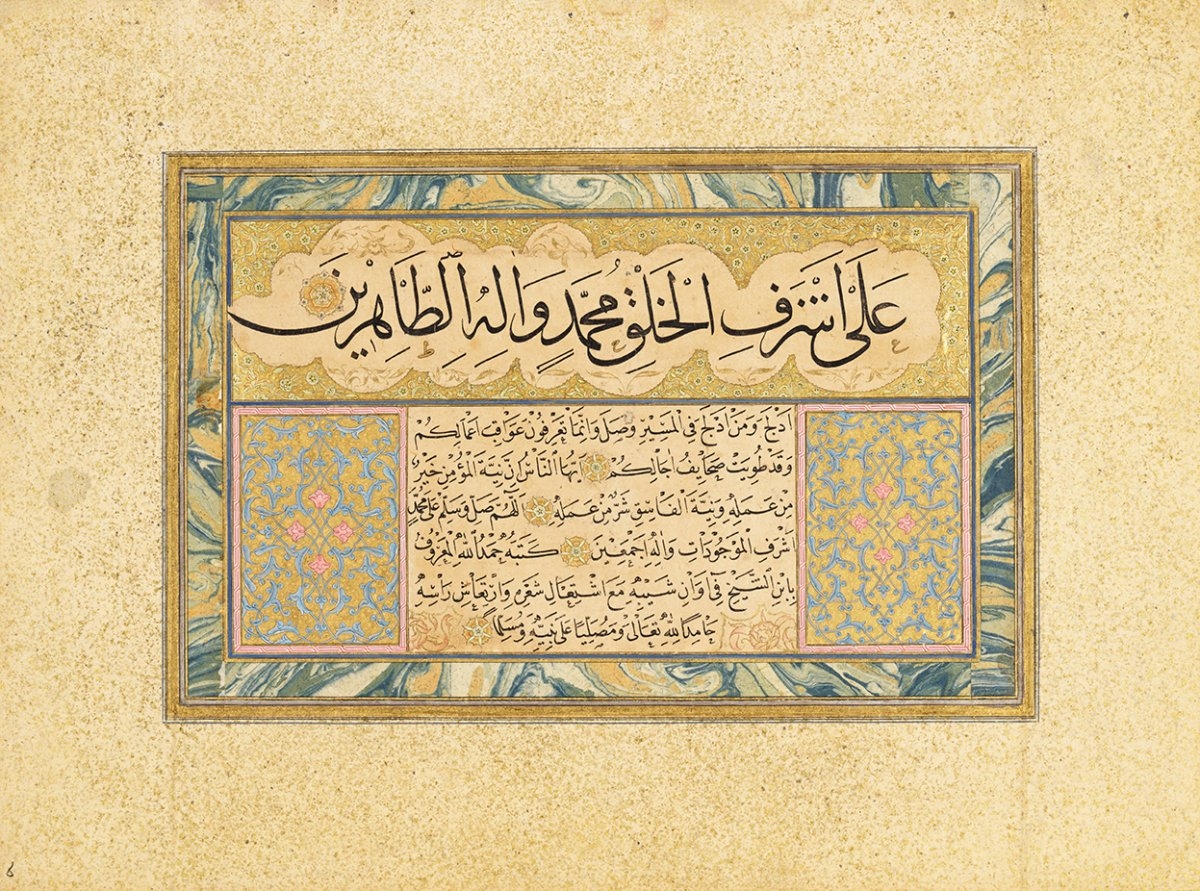 عَلَىٰ اَشْرَفِ الْخَلْقِ مُحَمَّدٍ وَاٰلِهِ الطَّاهِرِينَ
ادلج ومن ادلج في المسير وصل وانما تعرفون عواقب اعمالكم
وقد طويت صحايف اجالكم ايها الناس ان نية المؤمن خير
من عمله ونية الفاسق شر من عمله اللهم صل وسلم على محمد
اشرف الموجودات واله اجمعين كتبه حمد الله المعروف
بابن الشيخ في اوان شيبه مع اشتعال شعره وارتعاش راسه
حامدا لله تعالى ومصليا على نبيه ومسلما